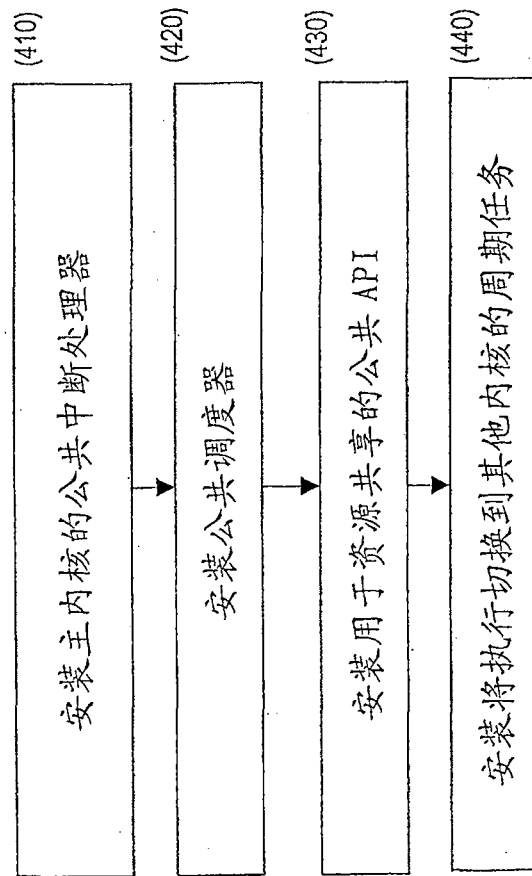 (410)
安装主内核的公共中断处理器
(420)
安装公共调度器
(430)
安装用于资源共享的公共 API
(440)
安装将执行切换到其他内核的周期任务